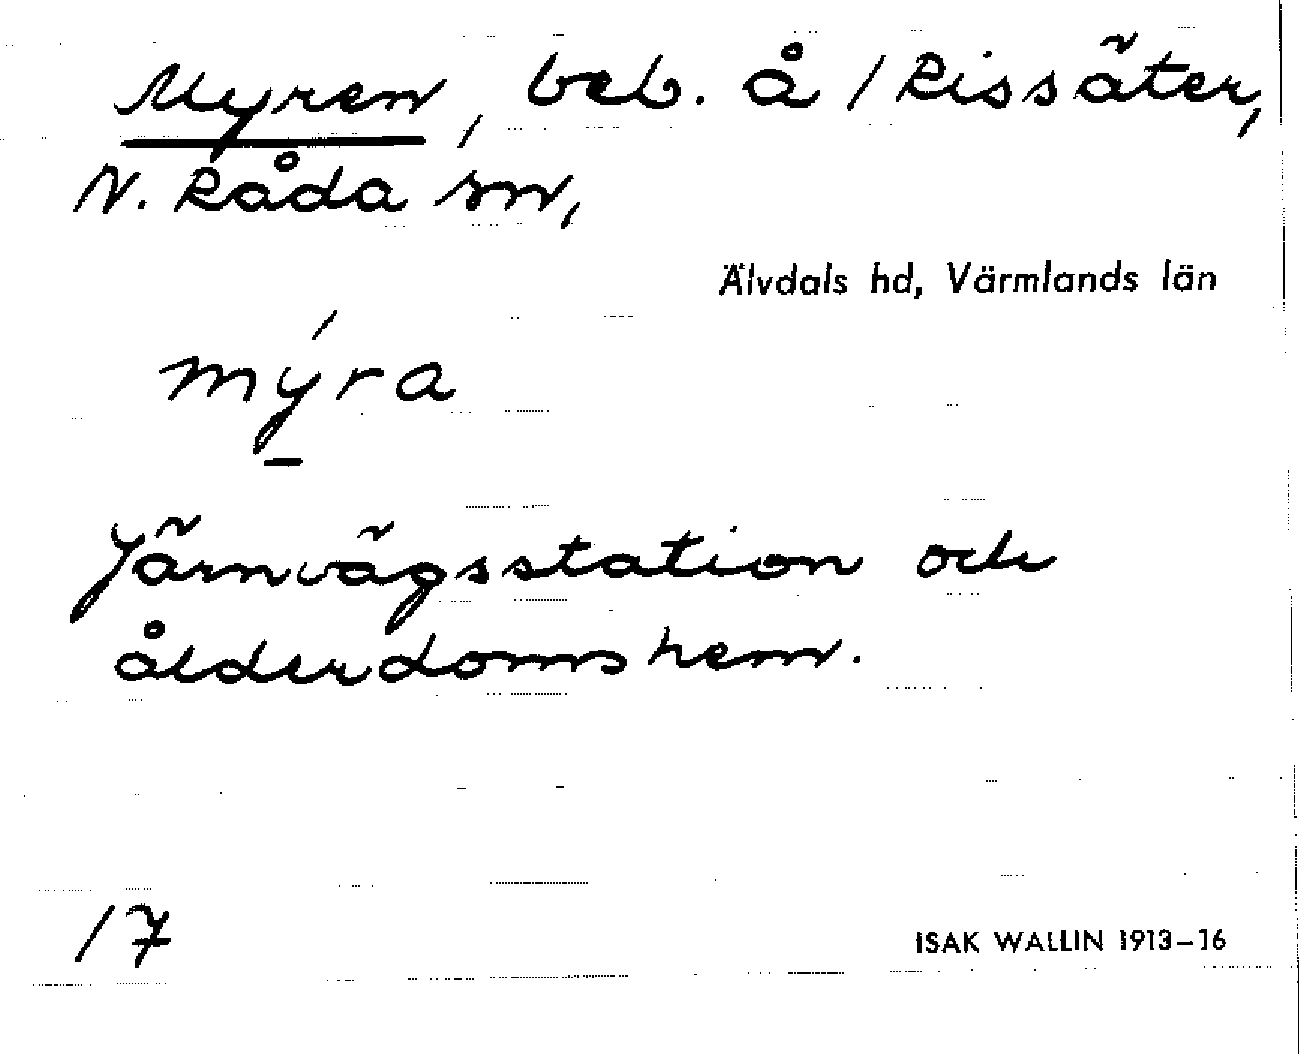 Myren, beb. å 1 Rissäter,
N. Råda sn,
Älvdals hd, Värmlands län
mýra
Järnvägsstation och
ålderdomshem.
17
ISAK WALLIN 1913–16